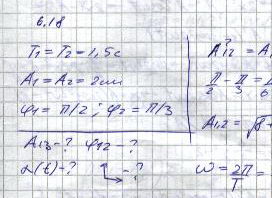 6.18
T₁ = T₂ = 1,5с
A₁ = A₂ = 2см
φ₁ = π/2 ; φ₂ = π/3
A₁₂ - ? φ₁₂ - ?
x(t) - ? - ?
A²₁₂ = A₁
π/2 - π/3 = π/6
A₁,₂ = √8+
ω = 2π/T =